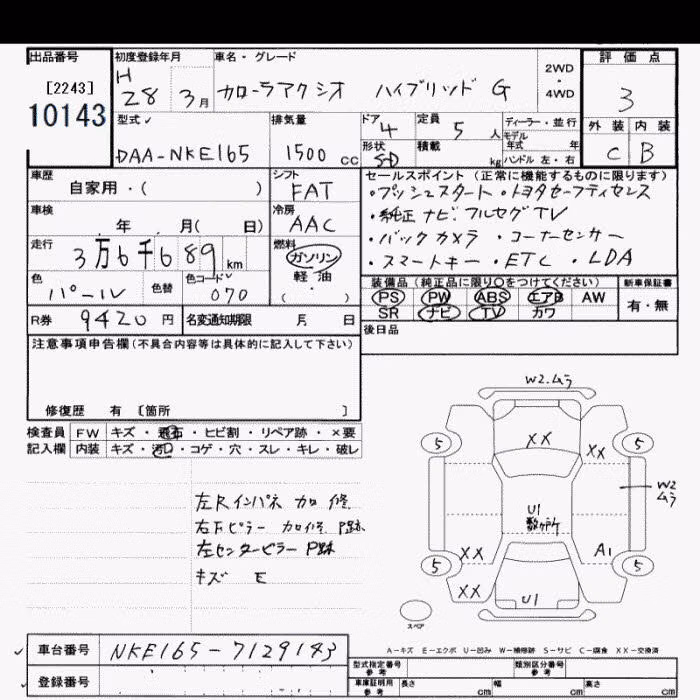 出品番号 初度登録年月 車名・グレード 評価点
[2243]
10143
H 28 3月 カローラアクシオ ハイブリッド G 2WD・4WD 3
型式 排気量 ドア 定員 ディーラー・並行 外装 内装
DAA-NKE165 1500 cc 4 5人 モデル年式 年 C B
形状 積載 kg ハンドル 左・右
車歴 シフト セールスポイント (正常に機能するものに限ります)
自家用・( ) FAT ・プッシュスタート ・トヨタセーフティセンス
車検 冷房 ・純正ナビ フルセグTV
年 月( 日) AAC ・バックカメラ ・コーナーセンサー
走行 3万6千689km 燃料 ガソリン 軽・油 ( ・ ) ・スマートキー ・ETC ・LDA
色 色替 色コード 装備品 (純正品に限り○をつけてください) 新車保証書
パール 070 PS PW ABS エアB AW 有・無
R券 9420円 名変通知期限 月 日 SR ナビ TV カワ
注意事項申告欄(不具合内容等は具体的に記入して下さい) 後日品
修復歴 有 [箇所 ]
検査員 FW キズ・飛石・ヒビ割・リペア跡・×要
記入欄 内装 キズ・汚れ・コゲ・穴・スレ・キレ・破レ
W2.ムラ
5 XX XX 5
左Rインパネ カロ 修
U1 数ヶ所
W2 ムラ
右Fピラー カロ修 P跡
左センターピラー P跡
キズ E
5 XX A1 5
XX
U1
スペア
A-キズ E-エクボ U-凹み W-補修跡 S-サビ C-腐食 XX-交換済
車台番号 NKE165-7129143
登録番号
型式指定番号 参考 類別区分番号 参考
車庫証明用 参考 長さ cm 幅 cm 高さ cm